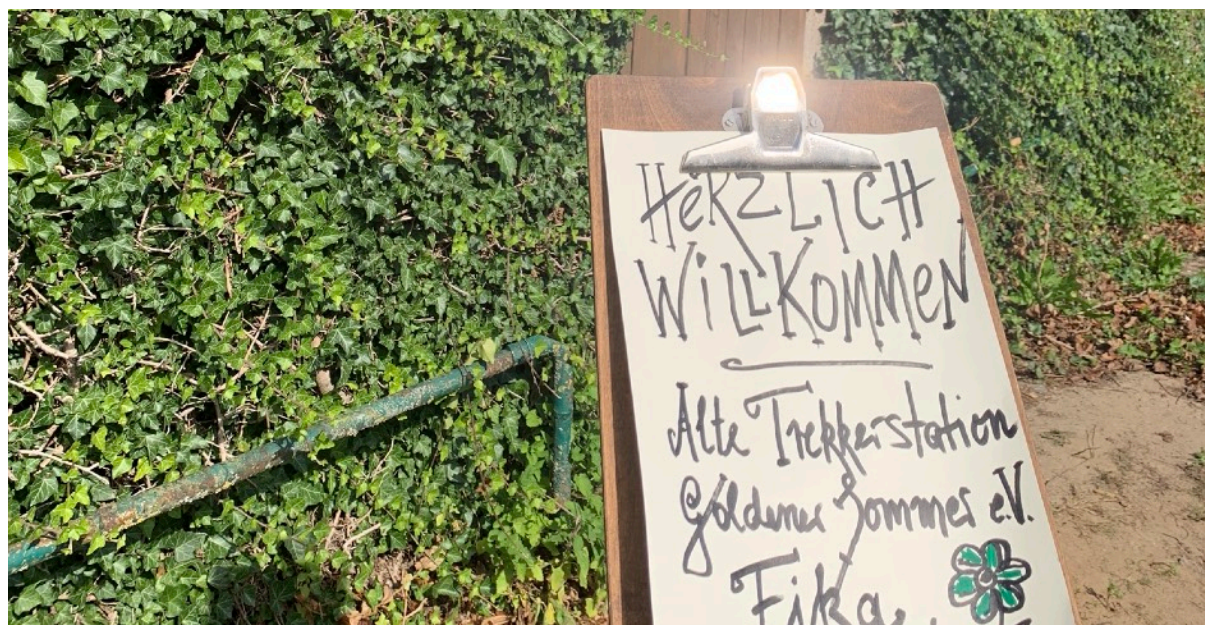 HERZLICH
WILLKOMMEN
Alte Trekkerstation
Goldener Sommer e.V.
Fika